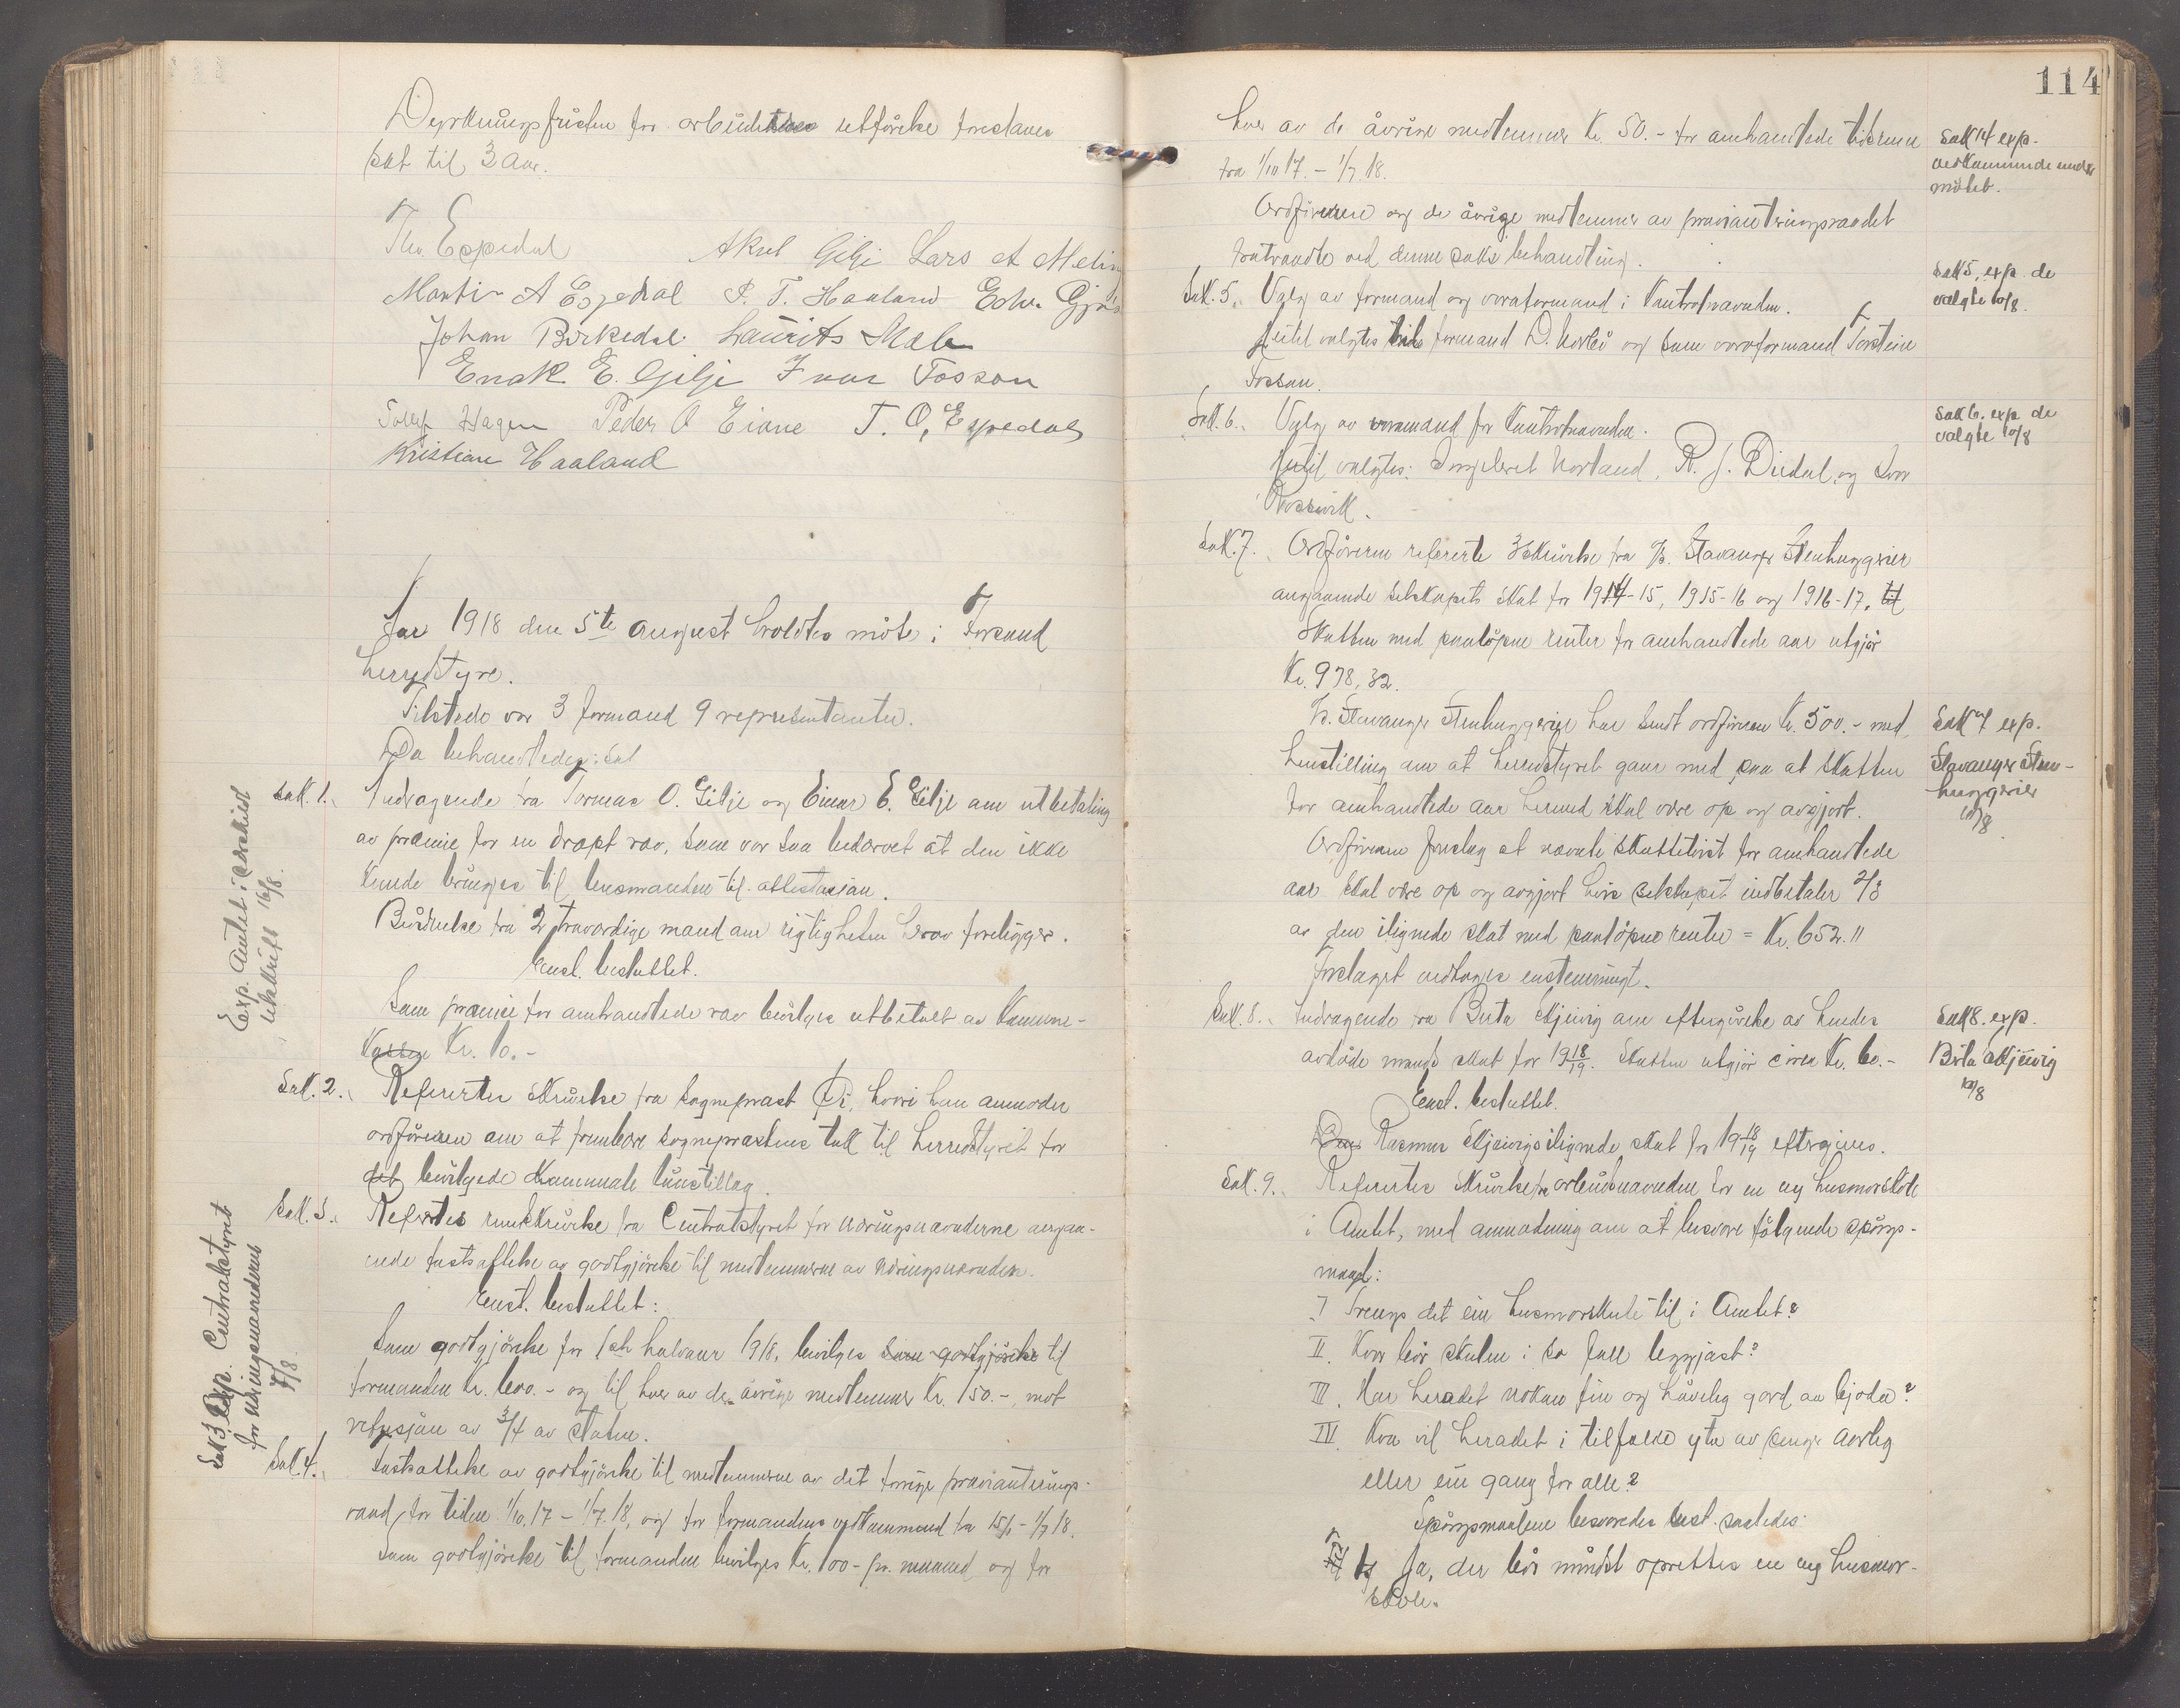 Dyrkningsfristen for arbeidets utförelse foreslaaes
sat til 3 aar.
Thv. Espedal Aksel Gilje Lars A Meling
Martin A Espedal P. T. Haaland Edv. Gjøs
Johan Birkedal. Laurits Mæle
Enok E. Gilje Ivar Fossan
Tollef Hagen Peder O Eiane T. O. Espedal
Kristian Haaland
Aar 1918 den 5te august holdtes möte i Forsand
herredstyre.
Tilstede var 3 formænd 9 representanter.
Da behandledes: Sak
Sak. 1. Andragende fra Tormas O. Gilje og Einar E. Gilje om utbetaling
av præmie for en dræpt ræv, som var saa bedærvet at den ikke
kunde bringes til lensmanden til attestasjon.
Bevidnelse fra 2 troværdige mænd om rigtigheten herav foreligger.
Enst. besluttet.
Som præmie for omhandlede ræv bevilges utbetalt av Kommune-
kassen Kr. 10.-
Exp. Amtet i særskilt
utskrift 16/8.
Sak. 2. Refertes skrivelse fra sogneprest Bö, hvori han anmoder
ordföreren om at frembære sogneprestens takk til herredstyret for
det bevilgede kommunale lönstillæg.
Sak. 3. Refertes rundskrivelse fra Centralstyret for næringsnævnderne angaa-
ende fastsættelse av godtgjörelse til medlemmerne av næringsnævnden.
Enst. besluttet:
Som godtgjörelse for 1ste halvaar 1918, bevilges som godtgjörelse til
formanden Kr. 600.- og til hver av de övrige medlemmer Kr. 150.-, mot
refusjon av 3/4 av staten.
Sak 3 Exp. Centralstyret
for næringsnævnderne
7/8.
Sak. 4. Fastsættelse av godtgjörelse til medlemmerne av det forrige provianterings-
raad, for tiden 1/10.17 - 1/7.18, og for formandens vedkommend fra 15/1 - 1/7 18.
Som godtgjörelse til formanden bevilges Kr. 100- pr. maaned og for
114
hver av de övrige medlemmer Kr. 50.- for omhandlede tidsrum
fra 1/10 17. - 1/7. 18.
Ordföreren og de övrige medlemmer av provianteringsraadet
fratraadte ved denne saks behandling.
Sak 14 exp.
vedkommende under
mötet.
Sak. 5. Valg av formand og varaformand i Kontrolnævnden.
Hertil valgtes som formand D. Norbö og som varaformand Torstein
Fossan.
Sak 5, exp. de
valgte 10/8.
Sak. 6. Valg av varamænd for Kontrolnævnden.
Hertil valgtes: Ingebret Norland, R. J. Dirdal, og Ivar
Rossavik.
Sak 6. exp de
valgte 10/8
Sak. 7. Ordföreren refererte 3 skrivelse fra A/S. Stavanger Stenhuggerier
angaaende selskapets skat for 1914-15, 1915-16 og 1916-17, til
Skatten med paalöpne renter for omhandlede aar utgjör
Kr. 978,32.
A/S. Stavanger Stenhuggerier har sendt ordföreren Kr. 500.- med
henstilling om at herredstyret gaar med paa at skatten
for omhandlede aar hermed skal være op og avgjort.
Ordföreren foreslog at nævnte skattetvist for omhandlede
aar skal være op og avgjort hvis selskapet indbetaler 2/3
av den ilignede skat med paalöpne renter = Kr. 652.11
Forslaget vedtoges enstemmigt.
Sak 7 exp.
Stavanger Sten-
huggerier
10/8
Sak. 8. Andragende fra Berta Skjeivig om eftergivelse av hendes
avdöde mands skat for 1918/19. Skatten utgjör cirka Kr. 60.-
Enst. besluttet.
Den Rasmus Skjeivigs ilignede skat for 1918/19 eftergives.
Sak 8. exp.
Birta Skjeivig
10/8
Sak. 9. Refertes skrivelse fra arbeidsnævnden for en ny husmorskole
i Amtet, med anmodning om at besvare fölgende spörgs-
maal:
I Trengs det ein husmorskule til i Amtet?
II. Kvar bör skulen i so fall leggjast?
III. Har heradet nokon fin og höveleg gard aa bjoda?
IV. Kva vil heradet i tilfelle yta av pengar aarleg
eller ein gang for alle?
Spörgsmaalene besvaredes enst. saaledes:
1) Ja, der bör mindst oprettes en ny husmor-
skole.